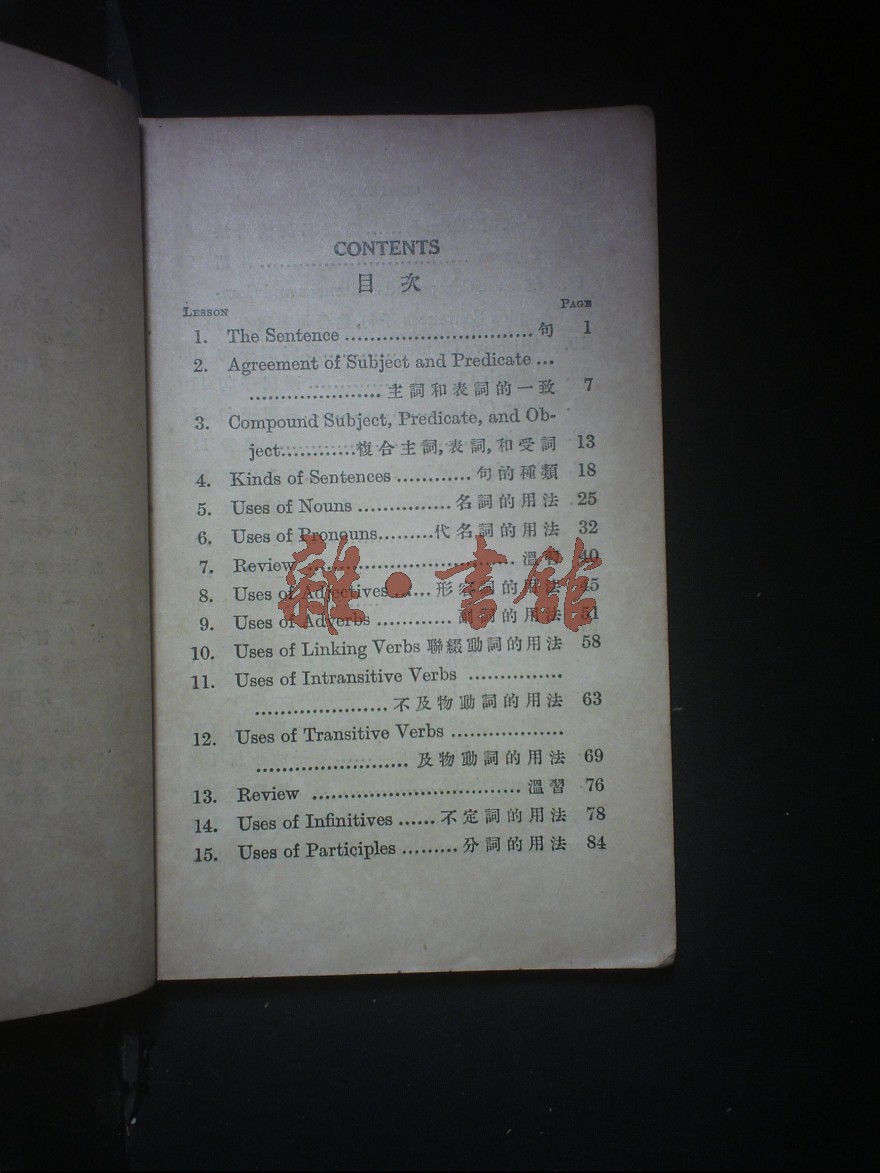 CONTENTS
目 次
LESSON PAGE
1. The Sentence .............................. 句 1
2. Agreement of Subject and Predicate ...
..................... 主詞和表詞的一致 7
3. Compound Subject, Predicate, and Ob-
ject............複合主詞,表詞,和受詞 13
4. Kinds of Sentences ............ 句的種類 18
5. Uses of Nouns ............... 名詞的用法 25
6. Uses of Pronouns.........代名詞的用法 32
7. Review ................................. 溫習 40
8. Uses of Adjectives...... 形容詞的用法 45
9. Uses of Adverbs ............ 副詞的用法 51
10. Uses of Linking Verbs 聯綴動詞的用法 58
11. Uses of Intransitive Verbs ...............
..................... 不及物動詞的用法 63
12. Uses of Transitive Verbs ..................
........................ 及物動詞的用法 69
13. Review ................................. 溫習 76
14. Uses of Infinitives ...... 不定詞的用法 78
15. Uses of Participles ......... 分詞的用法 84
雜·書館